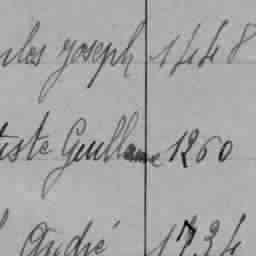 Joseph 1448
Guillaume 1260
André 1734